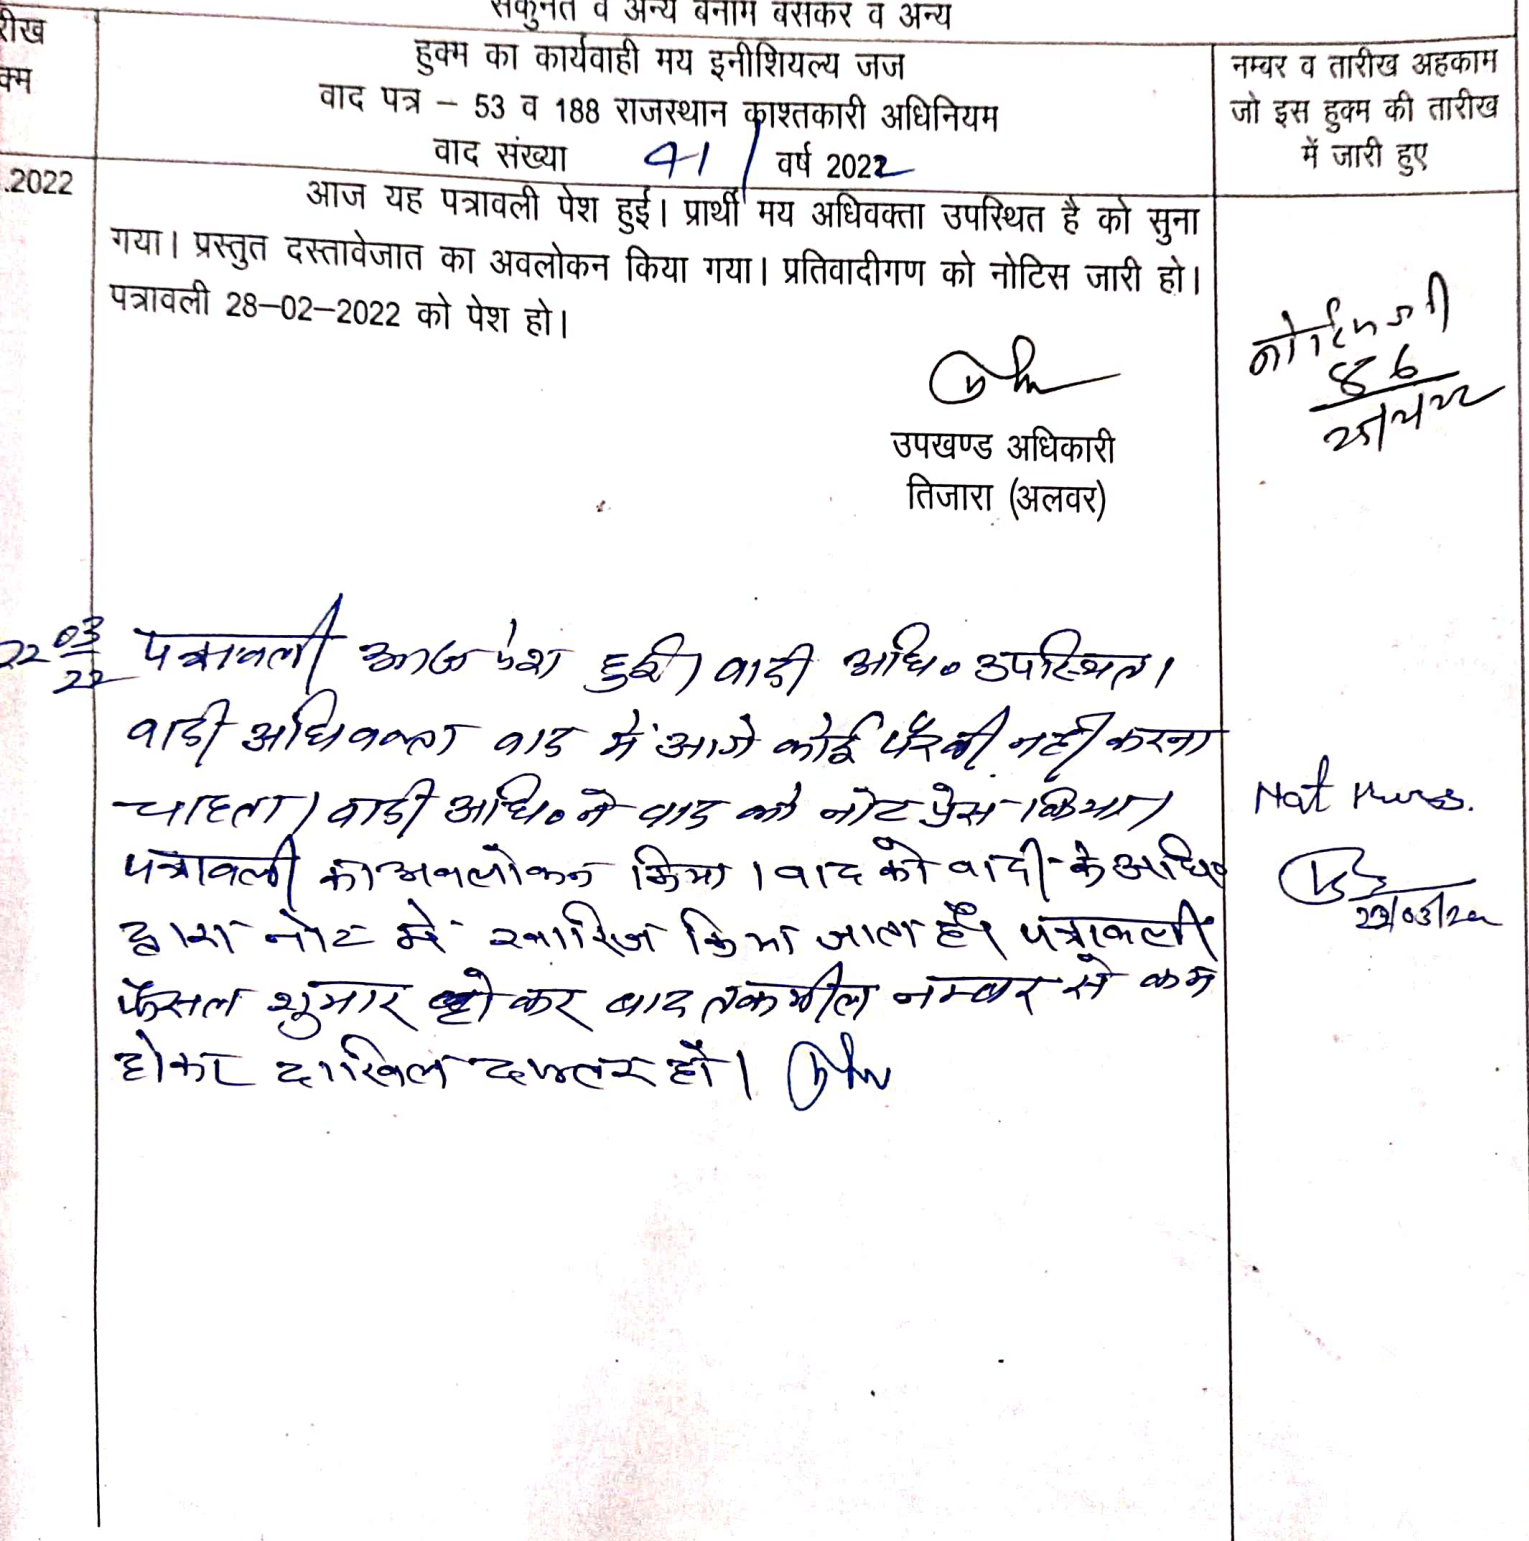 सकुनत व अन्य बनाम बसकर व अन्य
रीख
क्म
हुक्म का कार्यवाही मय इनीशियल्य जज
वाद पत्र – 53 व 188 राजस्थान काश्तकारी अधिनियम
वाद संख्या 41/ वर्ष 2022
नम्बर व तारीख अहकाम
जो इस हुक्म की तारीख
में जारी हुए
.2022
आज यह पत्रावली पेश हुई। प्रार्थी मय अधिवक्ता उपस्थित है को सुना
गया। प्रस्तुत दस्तावेजात का अवलोकन किया गया। प्रतिवादीगण को नोटिस जारी हो।
पत्रावली 28–02–2022 को पेश हो।
86
उपखण्ड अधिकारी
तिजारा (अलवर)
22 03
22
पत्रावली आज पेश हुई। वादी अधि० उपस्थित।
वादी अधिवक्ता वाद में आगे कोई पैरवी नही करना
चाहता। वादी अधि० ने वाद को नोट प्रेस किया।
पत्रावली का अवलोकन किया। वाद को वादी के अधि०
द्वारा नोट में खारिज किया जाता है। पत्रावली
फैसल शुमार होकर बाद तकमील नम्बर से कम
होकर दाखिल दफ्तर हो।
Not
22/03/22